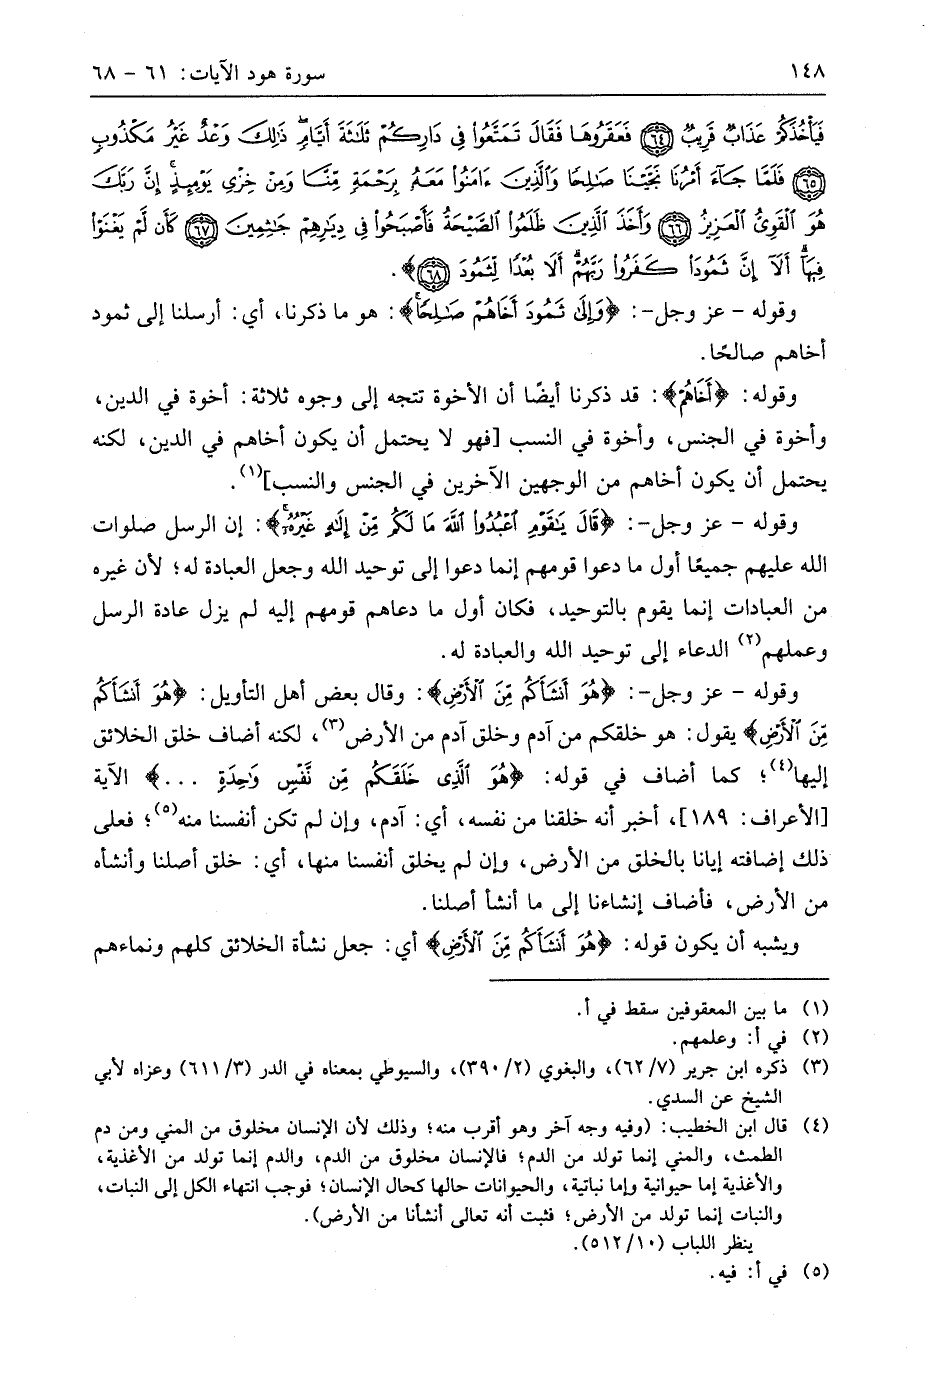 ١٤٨
سورة هود الآيات: ٦١ - ٦٨
فَيَأْخُذَكُمْ عَذَابٌ قَرِيبٌ ﴿٦٤﴾ فَعَقَرُوهَا فَقَالَ تَمَتَّعُوا۟ فِى دَارِكُمْ ثَلَٰثَةَ أَيَّامٍۖ ذَٰلِكَ وَعْدٌ غَيْرُ مَكْذُوبٍ
﴿٦٥﴾ فَلَمَّا جَآءَ أَمْرُنَا نَجَّيْنَا صَٰلِحًا وَٱلَّذِينَ ءَامَنُوا۟ مَعَهُۥ بِرَحْمَةٍ مِّنَّا وَمِنْ خِزْىِ يَوْمِئِذٍۗ إِنَّ رَبَّكَ
هُوَ ٱلْقَوِىُّ ٱلْعَزِيزُ ﴿٦٦﴾ وَأَخَذَ ٱلَّذِينَ ظَلَمُوا۟ ٱلصَّيْحَةُ فَأَصْبَحُوا۟ فِى دِيَٰرِهِمْ جَٰثِمِينَ ﴿٦٧﴾ كَأَن لَّمْ يَغْنَوْا۟
فِيهَآۗ أَلَآ إِنَّ ثَمُودَا۟ كَفَرُوا۟ رَبَّهُمْۗ أَلَا بُعْدًا لِّثَمُودَ ﴿٦٨﴾﴾.
وقوله - عز وجل-: ﴿وَإِلَىٰ ثَمُودَ أَخَاهُمْ صَٰلِحًاۚ﴾: هو ما ذكرنا، أي: أرسلنا إلى ثمود
أخاهم صالحًا.
وقوله: ﴿أَخَاهُمْ﴾: قد ذكرنا أيضًا أن الأخوة تتجه إلى وجوه ثلاثة: أخوة في الدين،
وأخوة في الجنس، وأخوة في النسب [فهو لا يحتمل أن يكون أخاهم في الدين، لكنه
يحتمل أن يكون أخاهم من الوجهين الآخرين في الجنس والنسب](١).
وقوله - عز وجل-: ﴿قَالَ يَٰقَوْمِ ٱعْبُدُوا۟ ٱللَّهَ مَا لَكُم مِّنْ إِلَٰهٍ غَيْرُهُۥۚ﴾: إن الرسل صلوات
الله عليهم جميعًا أول ما دعوا قومهم إنما دعوا إلى توحيد الله وجعل العبادة له؛ لأن غيره
من العبادات إنما يقوم بالتوحيد، فكان أول ما دعاهم قومهم إليه لم يزل عادة الرسل
وعملهم(٢) الدعاء إلى توحيد الله والعبادة له.
وقوله - عز وجل-: ﴿هُوَ أَنشَأَكُم مِّنَ ٱلْأَرْضِ﴾: وقال بعض أهل التأويل: ﴿هُوَ أَنشَأَكُم
مِّنَ ٱلْأَرْضِ﴾ يقول: هو خلقكم من آدم وخلق آدم من الأرض(٣)، لكنه أضاف خلق الخلائق
إليها(٤)؛ كما أضاف في قوله: ﴿هُوَ ٱلَّذِى خَلَقَكُم مِّن نَّفْسٍ وَٰحِدَةٍ ...﴾ الآية
[الأعراف: ١٨٩]، أخبر أنه خلقنا من نفسه، أي: آدم، وإن لم تكن أنفسنا منه(٥)؛ فعلى
ذلك إضافته إيانا بالخلق من الأرض، وإن لم يخلق أنفسنا منها، أي: خلق أصلنا وأنشأه
من الأرض، فأضاف إنشاءنا إلى ما أنشأ أصلنا.
ويشبه أن يكون قوله: ﴿هُوَ أَنشَأَكُم مِّنَ ٱلْأَرْضِ﴾ أي: جعل نشأة الخلائق كلهم ونماءهم
(١) ما بين المعقوفين سقط في أ.
(٢) في أ: وعلمهم.
(٣) ذكره ابن جرير (٧/ ٦٢)، والبغوي (٢/ ٣٩٠)، والسيوطي بمعناه في الدر (٣/ ٦١١) وعزاه لأبي
الشيخ عن السدي.
(٤) قال ابن الخطيب: (وفيه وجه آخر وهو أقرب منه؛ وذلك لأن الإنسان مخلوق من المني ومن دم
الطمث، والمني إنما تولد من الدم؛ فالإنسان مخلوق من الدم، والدم إنما تولد من الأغذية،
والأغذية إما حيوانية وإما نباتية، والحيوانات حالها كحال الإنسان؛ فوجب انتهاء الكل إلى النبات،
والنبات إنما تولد من الأرض؛ فثبت أنه تعالى أنشأنا من الأرض).
ينظر اللباب (١٠/ ٥١٢).
(٥) في أ: فيه.